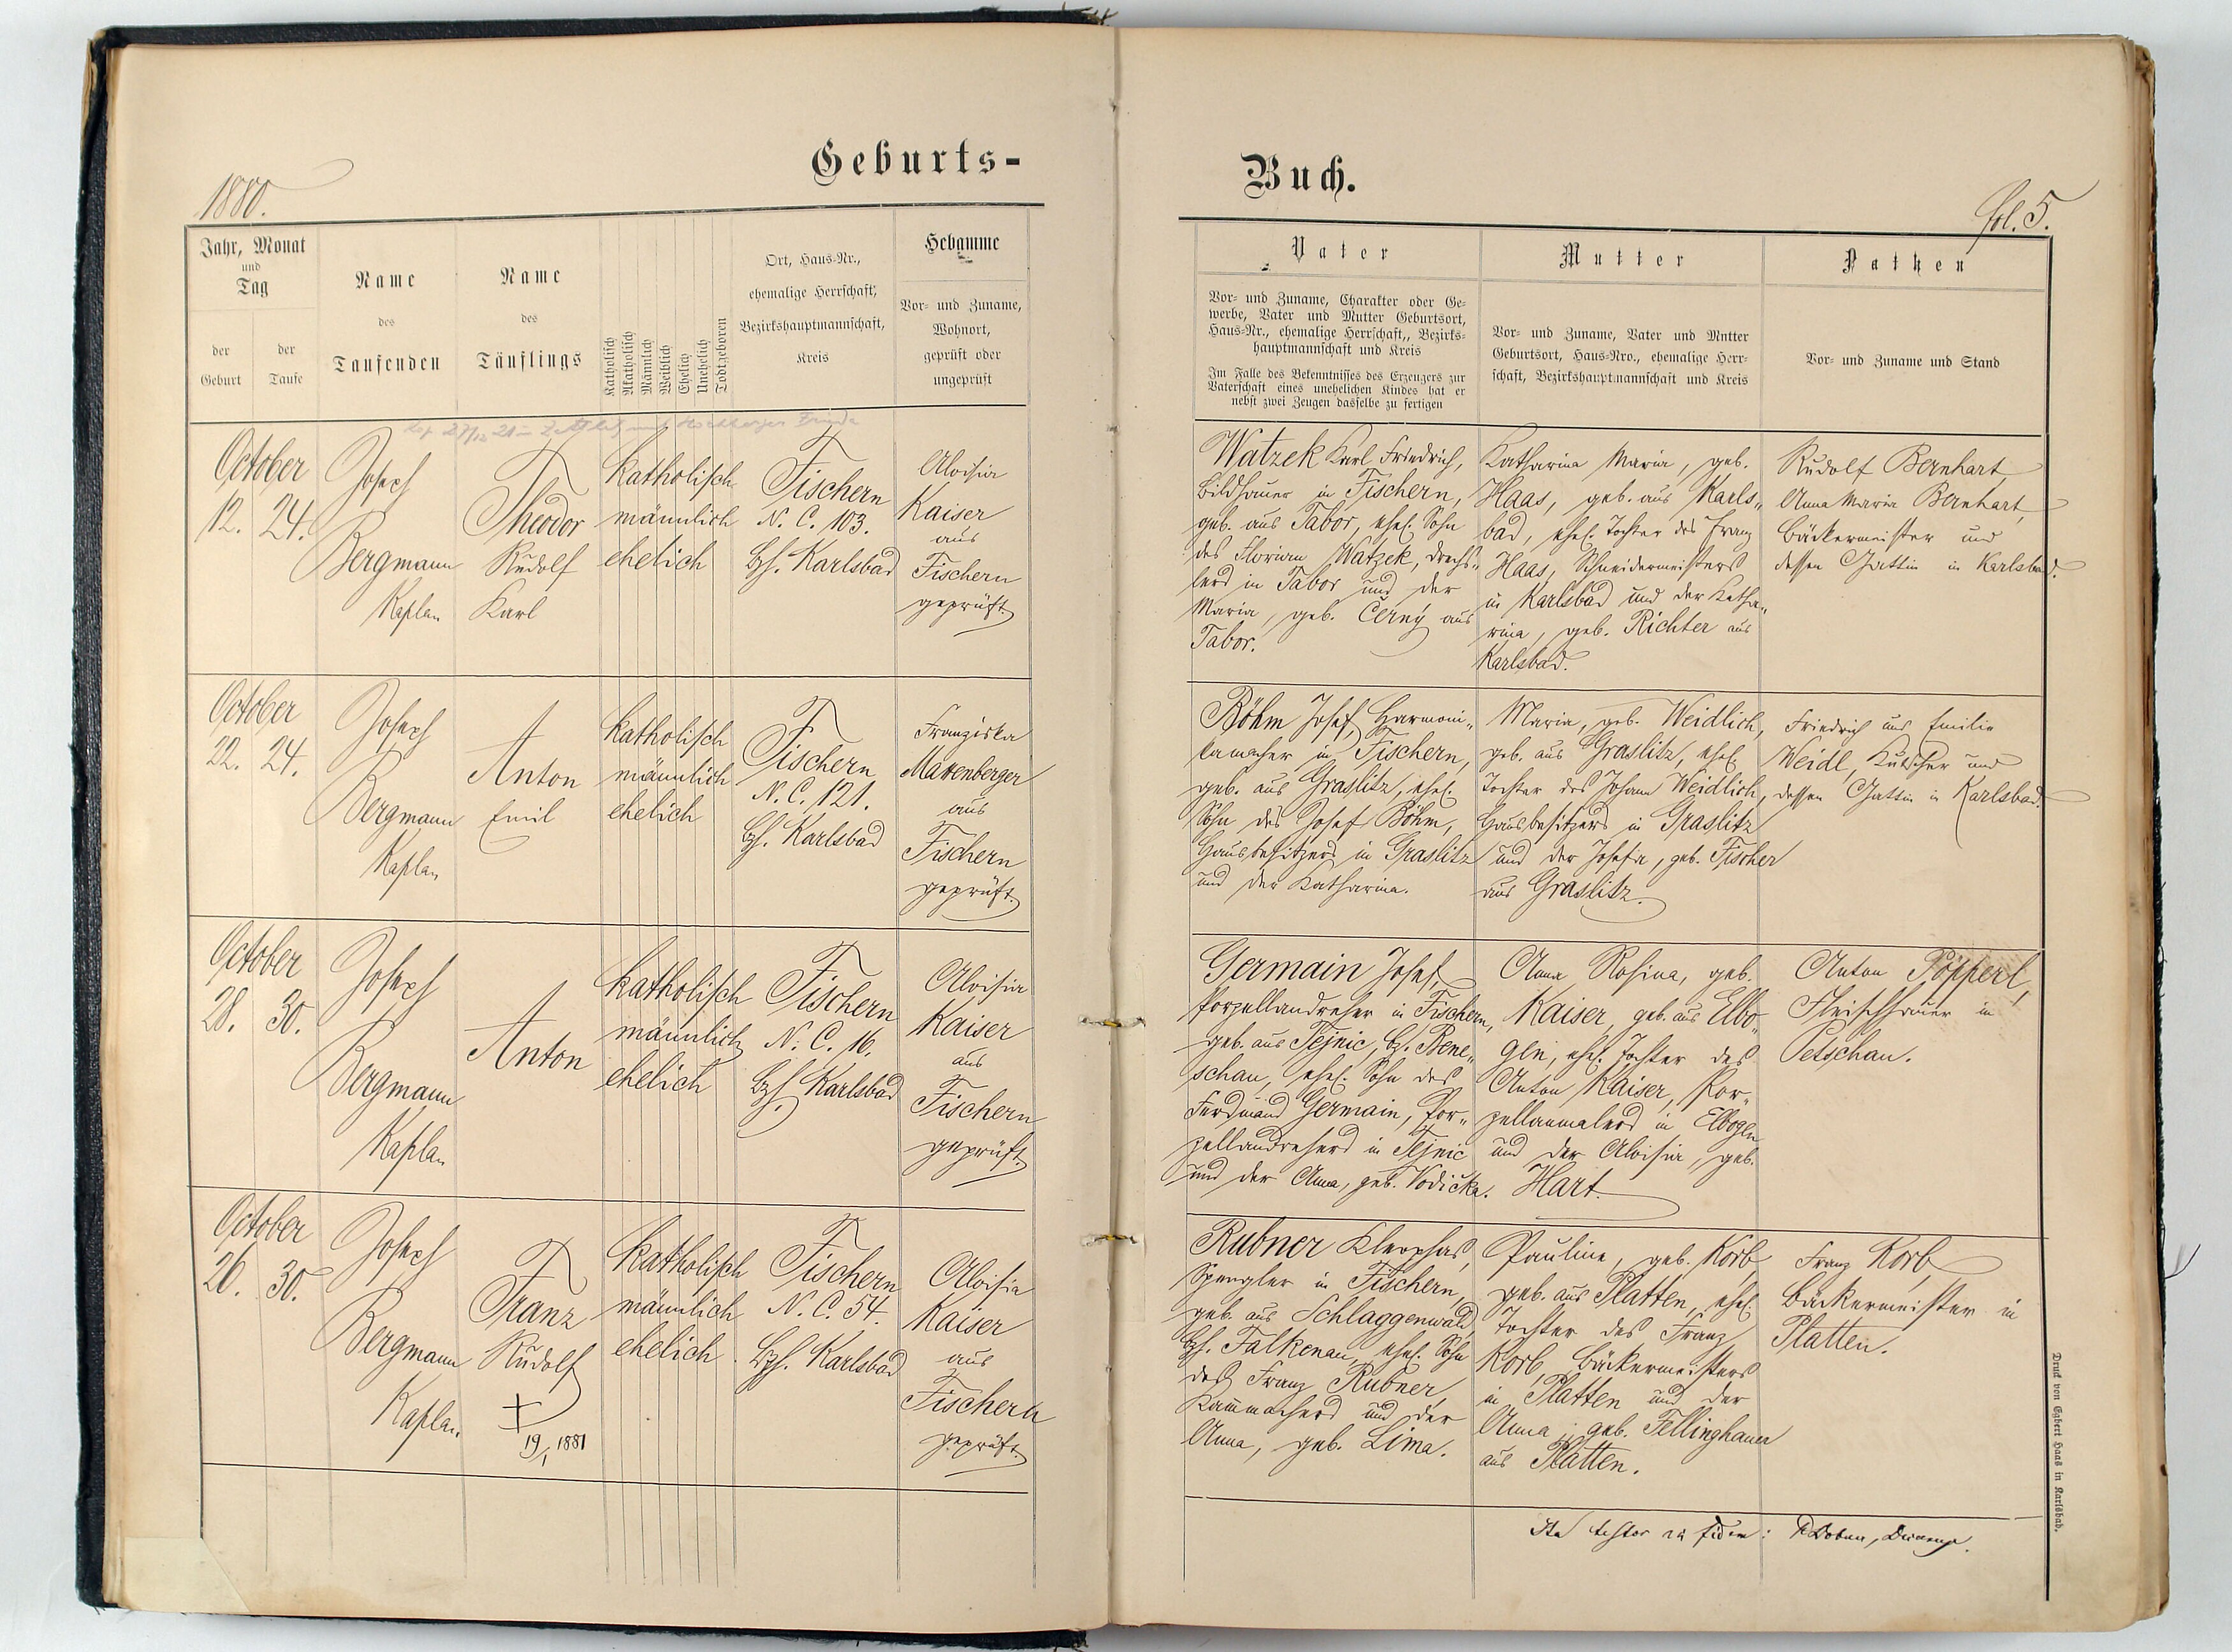 Geburts-
1880.
Jahr, Monat
und
Tag
der
Geburt
der
Taufe
Name
des
Taufenden
Name
des
Täuflings
Katholisch
Akatholisch
Männlich
Weiblich
Ehelich
Unehelich
Todtgeboren
Ort, Haus-Nr.,
ehemalige Herrschaft,
Bezirkshauptmannschaft,
Kreis
Hebamme
Vor- und Zuname,
Wohnort,
geprüft oder
ungeprüft
October
12. 24.
Josef
Bergmann
Kaplan
Theodor
Rudolf
Karl
katholisch
männlich
ehelich
Fischern
N. C. 103.
Bzh. Karlsbad
Aloisia
Kaiser
aus
Fischern
geprüft.
October
22. 24.
Josef
Bergmann
Kaplan
Anton
Emil
katholisch
männlich
ehelich
Fischern
N. C. 121.
Bzh. Karlsbad
Franziska
aus
Fischern
geprüft.
October
28. 30.
Josef
Bergmann
Kaplan
Anton
katholisch
männlich
ehelich
Fischern
N. C. 16.
Bzh. Karlsbad
Aloisia
Kaiser
aus
Fischern
geprüft.
October
26. 30.
Josef
Bergmann
Kaplan.
Franz
Rudolf
+
19/1 1881
katholisch
männlich
ehelich
Fischern
N. C. 54.
Bzh. Karlsbad
Aloisia
Kaiser
aus
Fischern
geprüft.
Buch.
fol. 5.
Vater
Vor- und Zuname, Charakter oder Ge-
werbe, Vater und Mutter Geburtsort,
Haus-Nr., ehemalige Herrschaft,, Bezirks-
hauptmannschaft und Kreis
Im Falle des Bekenntnisses des Erzeugers zur
Vaterschaft eines unehelichen Kindes hat er
nebst zwei Zeugen dasselbe zu fertigen
Mutter
Vor- und Zuname, Vater und Mntter
Geburtsort, Haus-Nro., ehemalige Herr-
schaft, Bezirkshauptmannschaft und Kreis
Pathen
Vor- und Zuname und Stand
Watzek Karl Friedrich,
Bildhauer in Fischern,
geb. aus Tabor, ehel. Sohn
des Florian Watzek, Drechs-
lers in Tabor und der
Maria, geb. Černý aus
Tabor.
Katharina Maria, geb.
Haas, geb. aus Karls-
bad, ehel. Tochter des Franz
Haas, Schneidermeisters
in Karlsbad und der Katha-
rina, geb. Richter aus
Karlsbad.
Rudolf Bernhart,
Anna Maria Bernhart,
Bäckermeister und
dessen Gattin in Karlsbad.
Böhm Josef, Harmoni-
kamacher in Fischern,
geb. aus Graslitz, ehel.
Sohn des Josef Böhm,
Hausbesitzers in Graslitz
und der Katharina.
Maria, geb. Weidlich,
geb. aus Graslitz, ehel.
Tochter des Johann Weidlich,
Hausbesitzers in Graslitz
und der Josefa, geb. Fischer
aus Graslitz.
Friedrich und Emilie
Weidl, Kutscher und
dessen Gattin in Karlsbad.
Germain Josef,
Porzellandreher in Fischern,
geb. aus Tejnic, bz. Bene-
schau, ehel. Sohn des
Ferdinand Germain, Por-
zellandrehers in Tejnic
und der Anna, geb. Vodička.
Anna Rosina, geb.
Kaiser, geb. aus Elbo-
gen, ehel. Tochter des
Anton Kaiser, Por-
zellanmalers in Elbogen
und der Aloisia, geb.
Hart.
Anton Pöpperl,
Fleischhauer in
Petschau.
Rubner Kleophas,
Spengler in Fischern,
geb. aus Schlaggenwald,
Bzh. Falkenau, ehel. Sohn
des Franz Rubner,
Kammachers und der
Anna, geb. Lima.
Pauline, geb. Korb,
geb. aus Platten, ehel.
Tochter des Franz
Korb, Bäckermeisters
in Platten und der
Anna, geb. Fellinghauer
aus Platten.
Franz Korb,
Bäckermeister in
Platten.
Ita testor ad fidem:
Druck von Egbert Haas in Karlsbad.